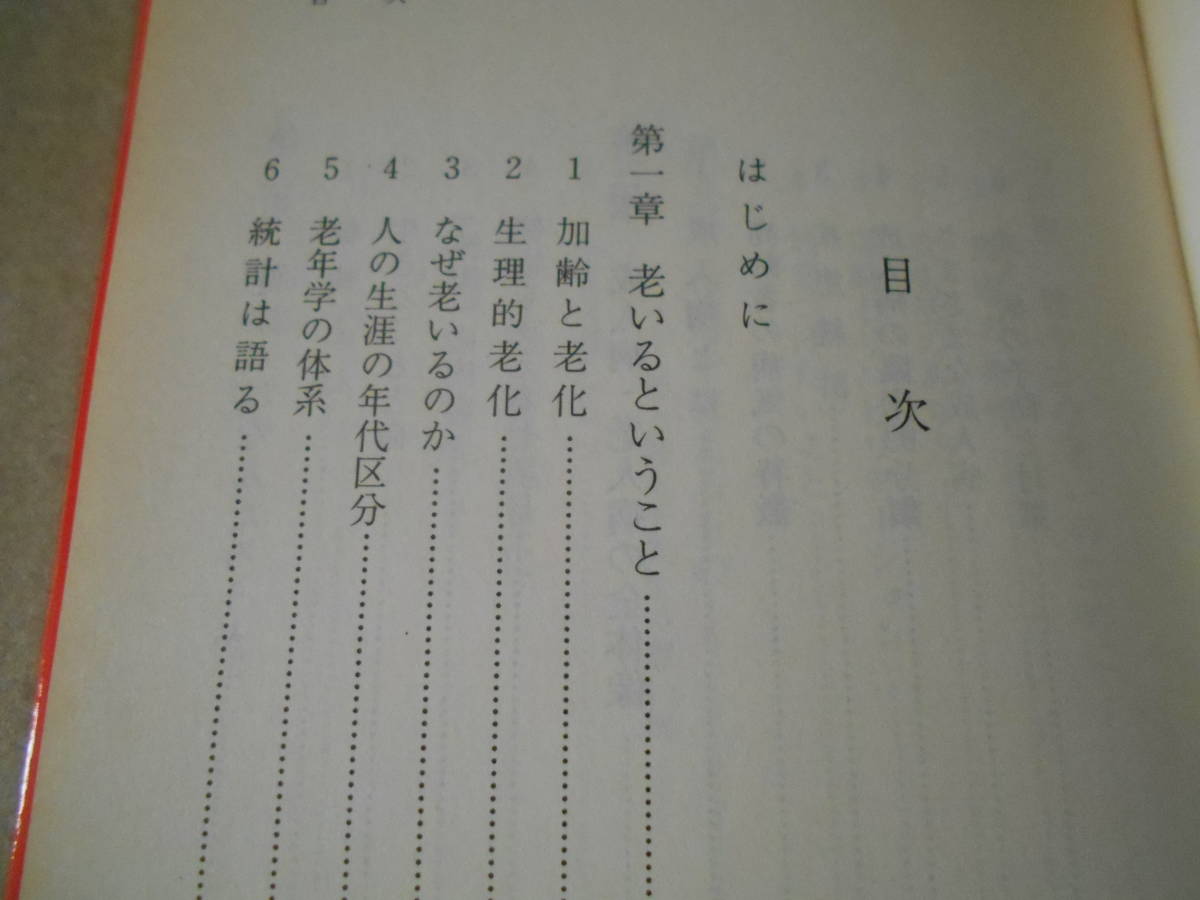 目次
はじめに
第一章 老いるということ……………………
1 加齢と老化……………………
2 生理的老化……………………
3 なぜ老いるのか……………………
4 人の生涯の年代区分……………………
5 老年学の体系……………………
6 統計は語る……………………